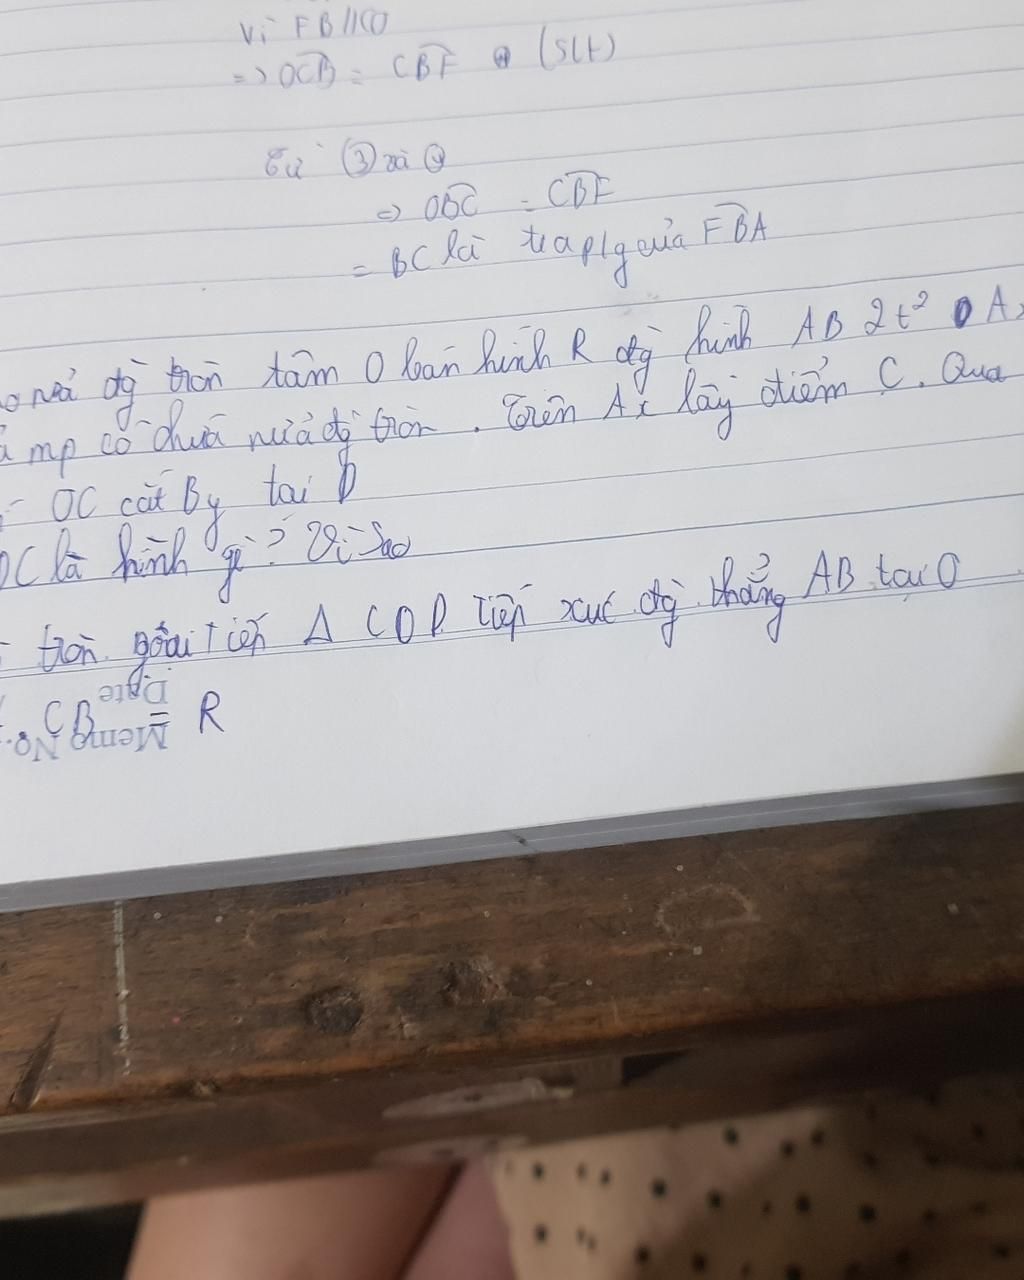 Vì FB//CO
=> OCB = CBF (SLT)
Từ (3) và (4)
=> OBC = CBF
= BC là tia p/g của FBA
nửa đg tròn tâm O bán kính R đg kính AB 2t² Ax
mp có chứa nửa đg tròn. Trên Ax lấy điểm C. Qua
OC cắt By tại D
OC là hình gì? Vì sao
tròn ngoại tiếp Δ COD tiếp xúc đg thẳng AB tại O
CB = R
Memo No.
Date